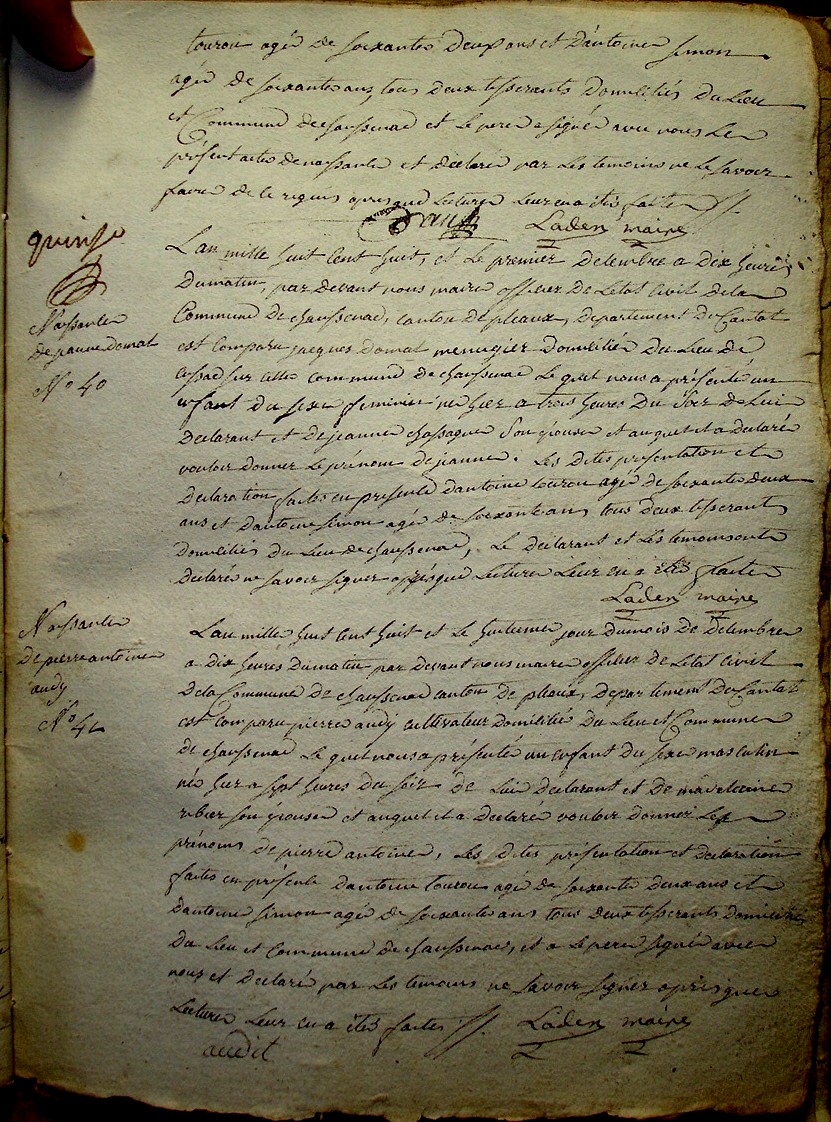 tourou agé de soixante deux ans et d'antoine simon
agé de soixante ans, tous deux tisserants domiciliés du Lieu
et Commune de chaussenac et le pere a signé avec nous Le
présent acte de naissance et déclaré par Les temoins ne le savoir
faire de ce requis après que Lecture Leur en a été faite
Laden maire
quinze
L'an mille huit cent huit, et Le premier decembre a dix heures
du matin, par devant nous maire officier De Letat Civil de la
Commune de chaussenac, canton de pleaux, departement Du Cantal
est comparu jacques Domat menuzier domicilié Du Lieu De
cette commune de chaussenac Le quel nous a présenté un
enfant du sexe feminin né hier a trois heures Du soir De Lui
Declarant et De jeanne chassagne son epouse et auquel il a declaré
vouloir donner Le prénom de jeanne. Les dites presentation et
declaration faites en presence d'antoine tourou agé de soixante deux
ans et d'antoine simon agé de soixante ans tous deux tisserants
domiciliés Du Lieu de chaussenac, Le declarant et Les temoins ont
declaré ne savoir signer après que Lecture Leur en a été faite
Laden maire
Naissance
de jeanne domat
No 40
L'an mille huit cent huit et Le huitieme jour du mois de Decembre
a dix heures Du matin par devant nous maire officier De Letat civil
De la Commune De chaussenac canton De pleaux, Departement Du Cantal
est comparu pierre audy cultivateur domicilié Du Lieu et Commune
de chaussenac Le quel nous a présenté un enfant Du sexe masculin
né hier a sept heures Du soir De Lui declarant et De madeleine
ribier son epouse et auquel il a declaré vouloir donner Les
prénoms De pierre antoine, Les Dites présentation et declaration
faites en présence d'antoine tourou agé De soixante deux ans et
D'antoine simon agé De soixante ans tous deux tisserants domiciliés
Du Lieu et commune De chaussenac, et a Le pere signé avec
nous et Declaré par Les temoins ne savoir signer après que
Lecture Leur en a été faite
Laden maire
audit
Naissance
De pierre antoine
audy
No 41